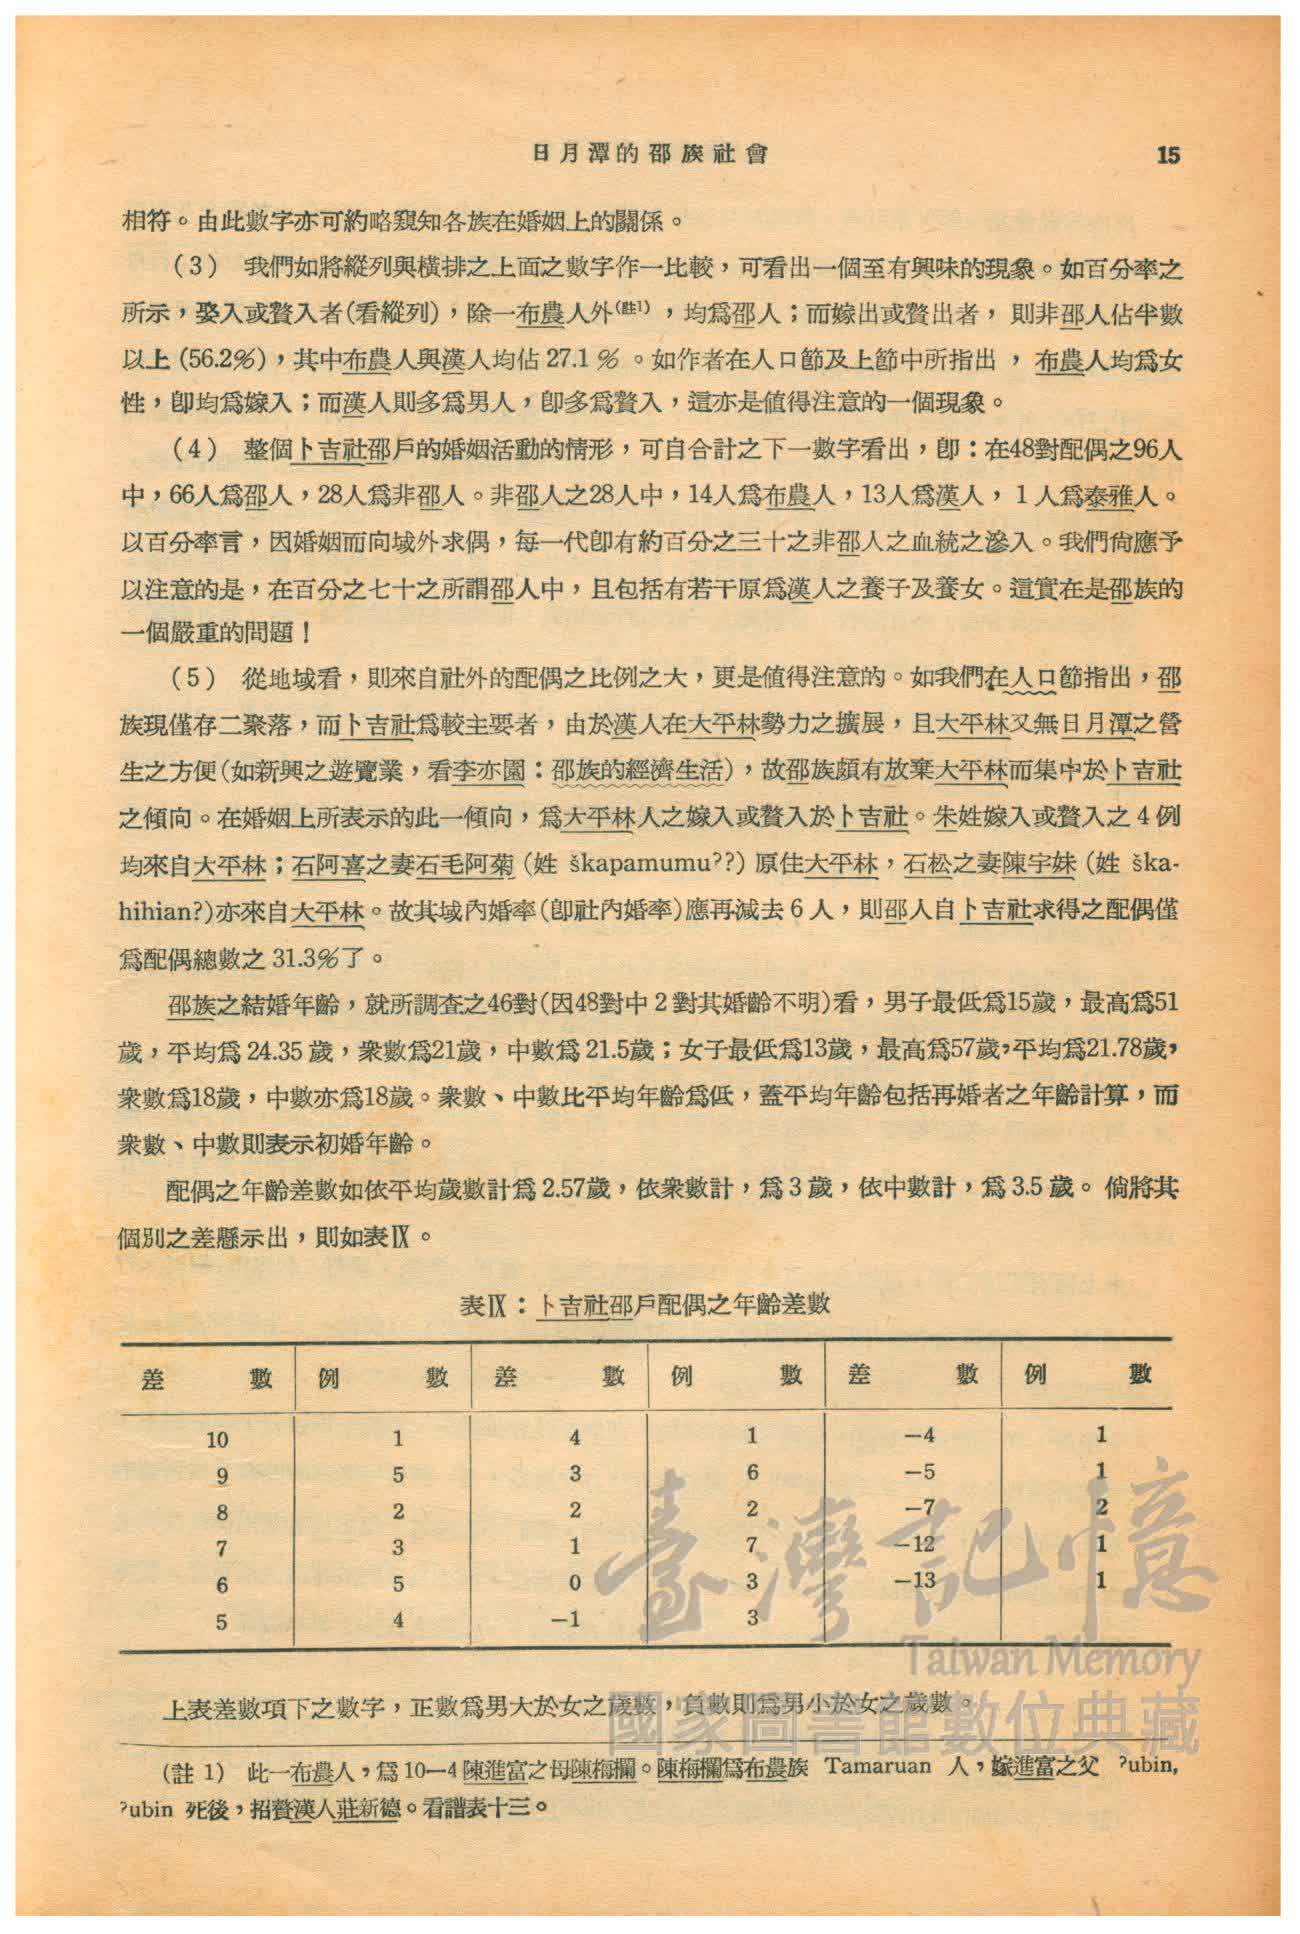 日月潭的邵族社會 15
相符。由此數字亦可約略窺知各族在婚姻上的關係。
(3) 我們如將縱列與橫排之上面之數字作一比較，可看出一個至有興味的現象。如百分率之
所示，娶入或贅入者(看縱列)，除一布農人外(註1)，均爲邵人；而嫁出或贅出者，則非邵人佔半數
以上(56.2%)，其中布農人與漢人均佔27.1%。如作者在人口節及上節中所指出，布農人均爲女
性，卽均爲嫁入；而漢人則多爲男人，卽多爲贅入，這亦是値得注意的一個現象。
(4) 整個卜吉社邵戶的婚姻活動的情形，可自合計之下一數字看出，卽：在48對配偶之96人
中，66人爲邵人，28人爲非邵人。非邵人之28人中，14人爲布農人，13人爲漢人，1人爲泰雅人。
以百分率言，因婚姻而向域外求偶，每一代卽有約百分之三十之非邵人之血統之滲入。我們尙應予
以注意的是，在百分之七十之所謂邵人中，且包括有若干原爲漢人之養子及養女。這實在是邵族的
一個嚴重的問題！
(5) 從地域看，則來自社外的配偶之比例之大，更是値得注意的。如我們在人口節指出，邵
族現僅存二聚落，而卜吉社爲較主要者，由於漢人在大平林勢力之擴展，且大平林又無日月潭之營
生之方便(如新興之遊覽業，看李亦園：邵族的經濟生活)，故邵族頗有放棄大平林而集中於卜吉社
之傾向。在婚姻上所表示的此一傾向，爲大平林人之嫁入或贅入於卜吉社。朱姓嫁入或贅入之4例
均來自大平林；石阿喜之妻石毛阿菊(姓 škapamumu??)原住大平林，石松之妻陳宇妹(姓 ška-
hihian?)亦來自大平林。故其域內婚率(卽社內婚率)應再減去6人，則邵人自卜吉社求得之配偶僅
爲配偶總數之31.3%了。
邵族之結婚年齡，就所調查之46對(因48對中2對其婚齡不明)看，男子最低爲15歲，最高爲51
歲，平均爲24.35歲，衆數爲21歲，中數爲21.5歲；女子最低爲13歲，最高爲57歲，平均爲21.78歲，
衆數爲18歲，中數亦爲18歲。衆數、中數比平均年齡爲低，蓋平均年齡包括再婚者之年齡計算，而
衆數、中數則表示初婚年齡。
配偶之年齡差數如依平均歲數計爲2.57歲，依衆數計，爲3歲，依中數計，爲3.5歲。倘將其
個別之差懸示出，則如表Ⅸ。
表Ⅸ：卜吉社邵戶配偶之年齡差數
差數 例數 差數 例數 差數 例數
10 1 4 1 −4 1
9 5 3 6 −5 1
8 2 2 2 −7 2
7 3 1 7 −12 1
6 5 0 3 −13 1
5 4 −1 3
上表差數項下之數字，正數爲男大於女之歲數，負數則爲男小於女之歲數。
(註1) 此一布農人，爲10—4陳進富之母陳梅欄。陳梅欄爲布農族 Tamaruan 人，嫁進富之父 ?ubin,
?ubin 死後，招贅漢人莊新德。看譜表十三。
臺灣記憶
Taiwan Memory
國家圖書館數位典藏